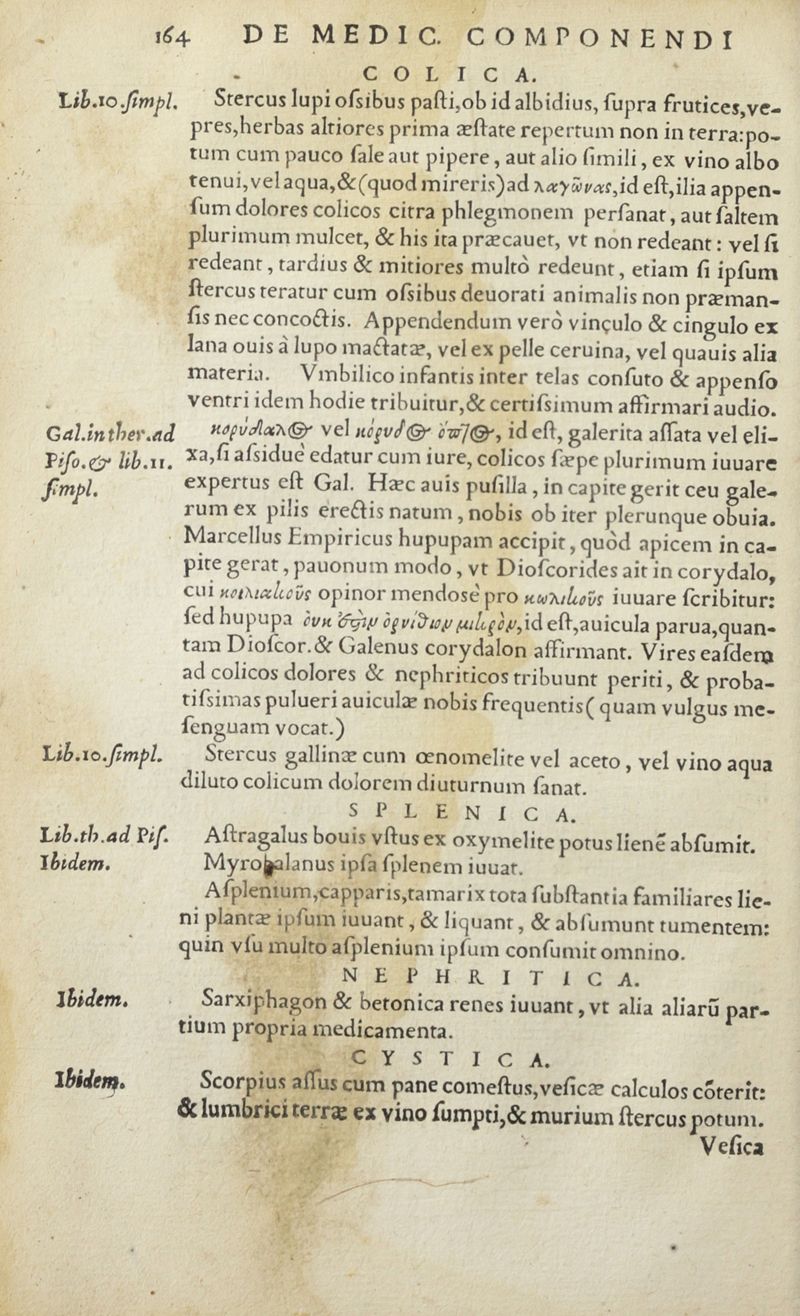 164 DE MEDIC. COMPONENDI
COLICA.
Lib.10.ſimpl. Stercus lupi oſsibus paſti,ob id albidius, ſupra frutices,ve-
pres,herbas altiores prima æſtate repertum non in terra:po-
tum cum pauco ſale aut pipere, aut alio ſimili, ex vino albo
tenui,vel aqua,&(quod mireris)ad λαγῶνας,id eſt,ilia appen-
ſum dolores colicos citra phlegmonem perſanat, aut ſaltem
plurimum mulcet, & his ita præcauet, vt non redeant: vel ſi
redeant, tardius & mitiores multò redeunt, etiam ſi ipſum
ſtercus teratur cum oſsibus deuorati animalis non præman-
ſis nec concoctis. Appendendum verò vinculo & cingulo ex
lana ouis à lupo mactatæ, vel ex pelle ceruina, vel quauis alia
materia. Vmbilico infantis inter telas conſuto & appenſo
ventri idem hodie tribuitur,& certiſsimum affirmari audio.
Gal.in ther.ad κορύδαλος vel κόρυδος ὀπτὸς, id eſt, galerita aſſata vel eli-
Piſo.& lib.11. xa,ſi aſsiduè edatur cum iure, colicos ſæpe plurimum iuuare
ſimpl. expertus eſt Gal. Hæc auis puſilla, in capite gerit ceu gale-
rum ex pilis erectis natum, nobis ob iter plerunque obuia.
Marcellus Empiricus hupupam accipit, quòd apicem in ca-
pite gerat, pauonum modo, vt Dioſcorides ait in corydalo,
cui κοιλιακοὺς opinor mendosè pro κωλικοὺς iuuare ſcribitur:
ſed hupupa οὐκ ἔστιν ὀρνίθιον μικρὸν,id eſt,auicula parua,quan-
tam Dioſcor.& Galenus corydalon affirmant. Vires eaſdem
ad colicos dolores & nephriticos tribuunt periti, & proba-
tiſsimas pulueri auiculæ nobis frequentis( quam vulgus me-
ſenguam vocat.)
Lib.10.ſimpl. Stercus gallinæ cum œnomelite vel aceto, vel vino aqua
diluto colicum dolorem diuturnum ſanat.
SPLENICA.
Lib.th.ad Piſ. Aſtragalus bouis vſtus ex oxymelite potus lienẽ abſumit.
Ibidem. Myrobalanus ipſa ſplenem iuuat.
Aſplenium,capparis,tamarix tota ſubſtantia familiares lie-
ni plantæ ipſum iuuant, & liquant, & abſumunt tumentem:
quin vſu multo aſplenium ipſum conſumit omnino.
NEPHRITICA.
Ibidem. Sarxiphagon & betonica renes iuuant, vt alia aliarũ par-
tium propria medicamenta.
CYSTICA.
Ibidem. Scorpius aſſus cum pane comeſtus,veſicæ calculos cõterit:
& lumbrici terræ ex vino ſumpti,& murium ſtercus potum.
Veſica